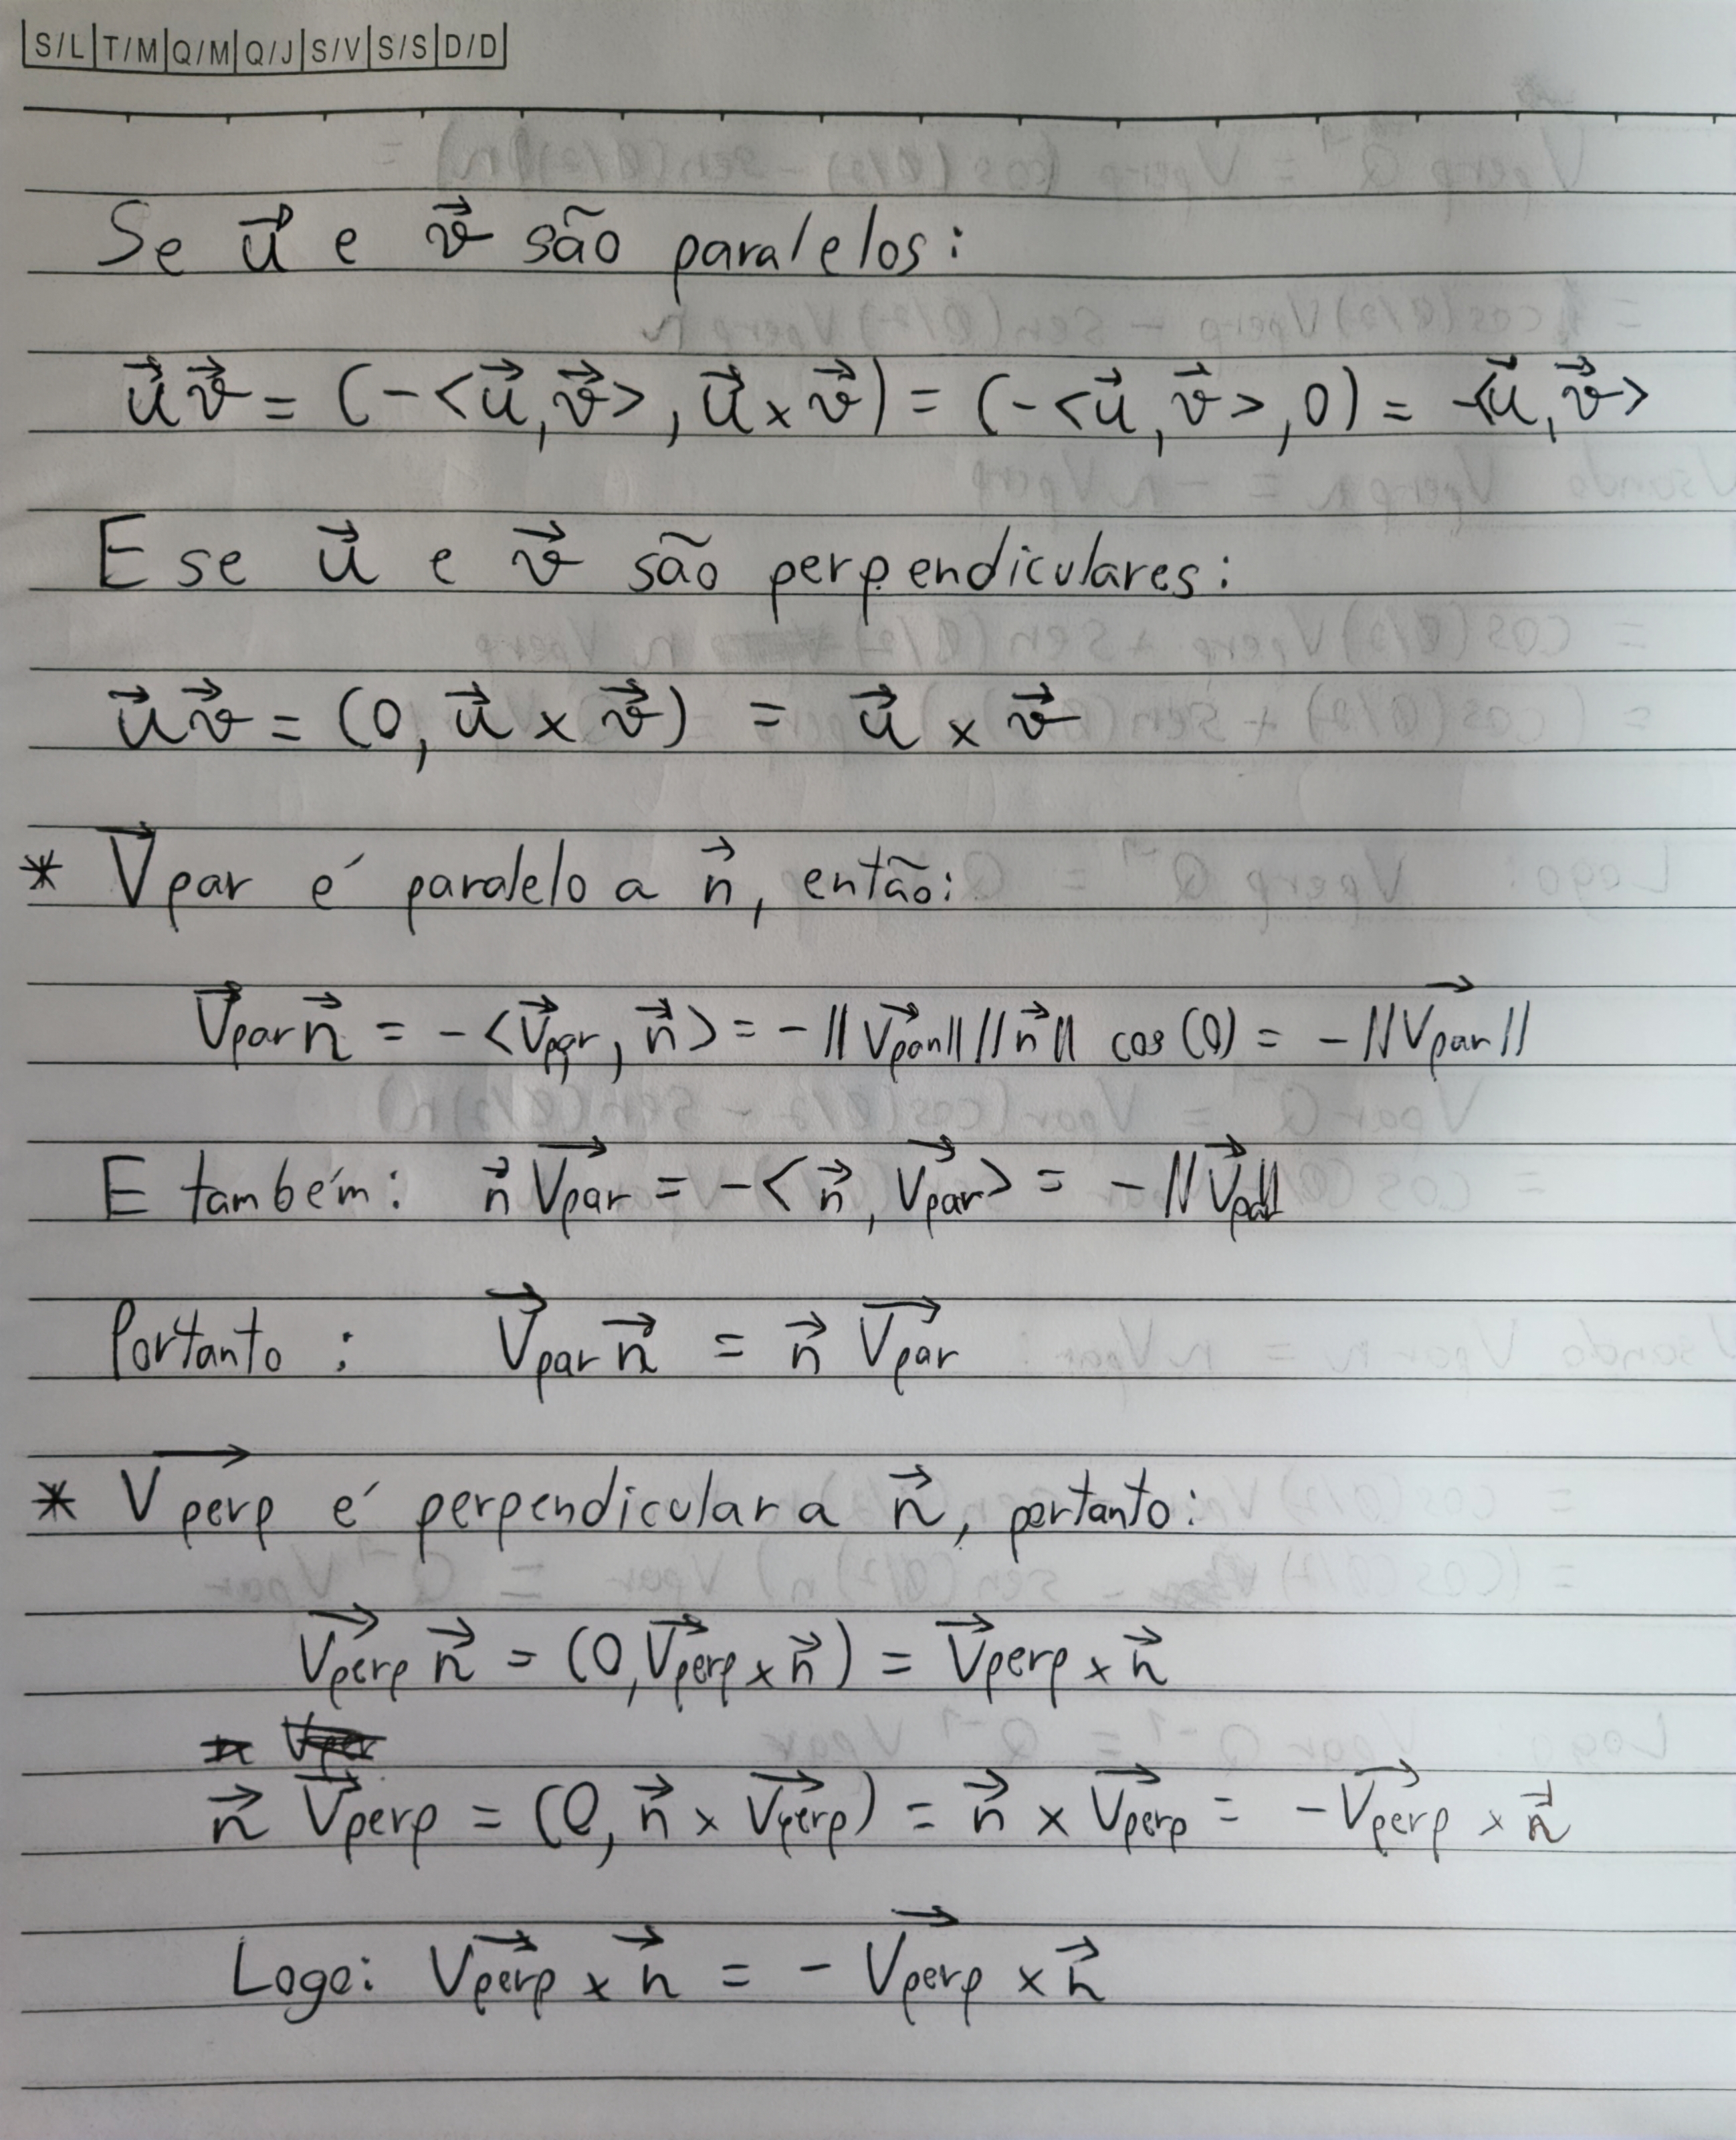 S/L T/M Q/M Q/J S/V S/S D/D
Se u⃗ e v⃗ são paralelos:
u⃗ v⃗ = (-<u⃗, v⃗>, u⃗ × v⃗) = (-<u⃗, v⃗>, 0) = -<u⃗, v⃗>
E se u⃗ e v⃗ são perpendiculares:
u⃗ v⃗ = (0, u⃗ × v⃗) = u⃗ × v⃗
* V⃗par é paralelo a n⃗, então:
V⃗par n⃗ = -<V⃗par, n⃗> = -||V⃗par|| ||n⃗|| cos(0) = -||V⃗par||
E também: n⃗ V⃗par = -<n⃗, V⃗par> = -||V⃗par||
Portanto: V⃗par n⃗ = n⃗ V⃗par
* V⃗perp é perpendicular a n⃗, portanto:
V⃗perp n⃗ = (0, V⃗perp × n⃗) = V⃗perp × n⃗
n⃗ V⃗perp = (0, n⃗ × V⃗perp) = n⃗ × V⃗perp = -V⃗perp × n⃗
Logo: V⃗perp × n⃗ = - V⃗perp × n⃗